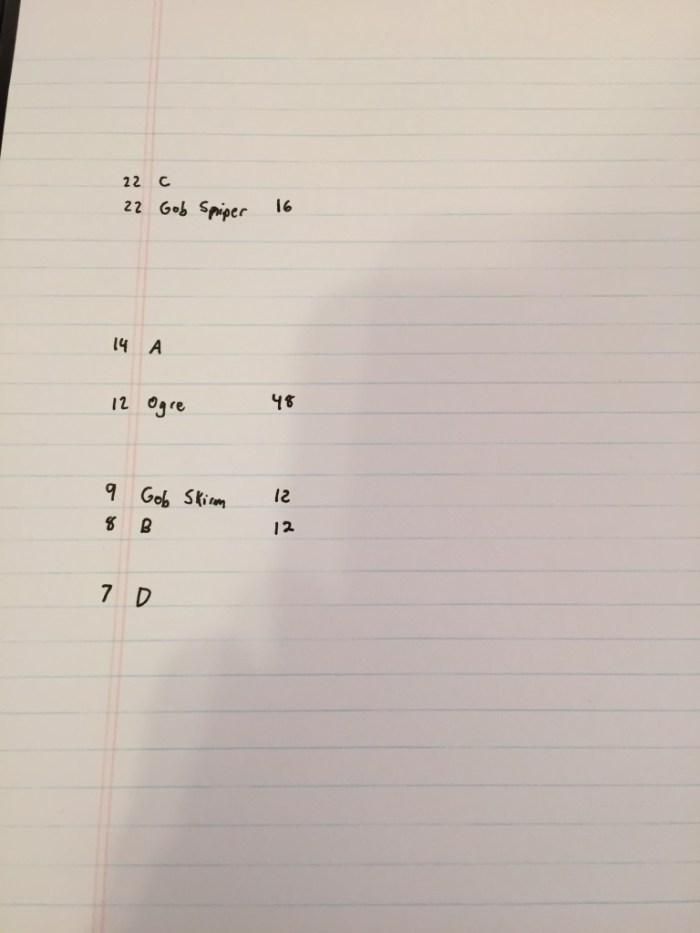 22 C
22 Gob Sniper 16
14 A
12 Ogre 48
9 Gob Skirm 12
8 B 12
7 D